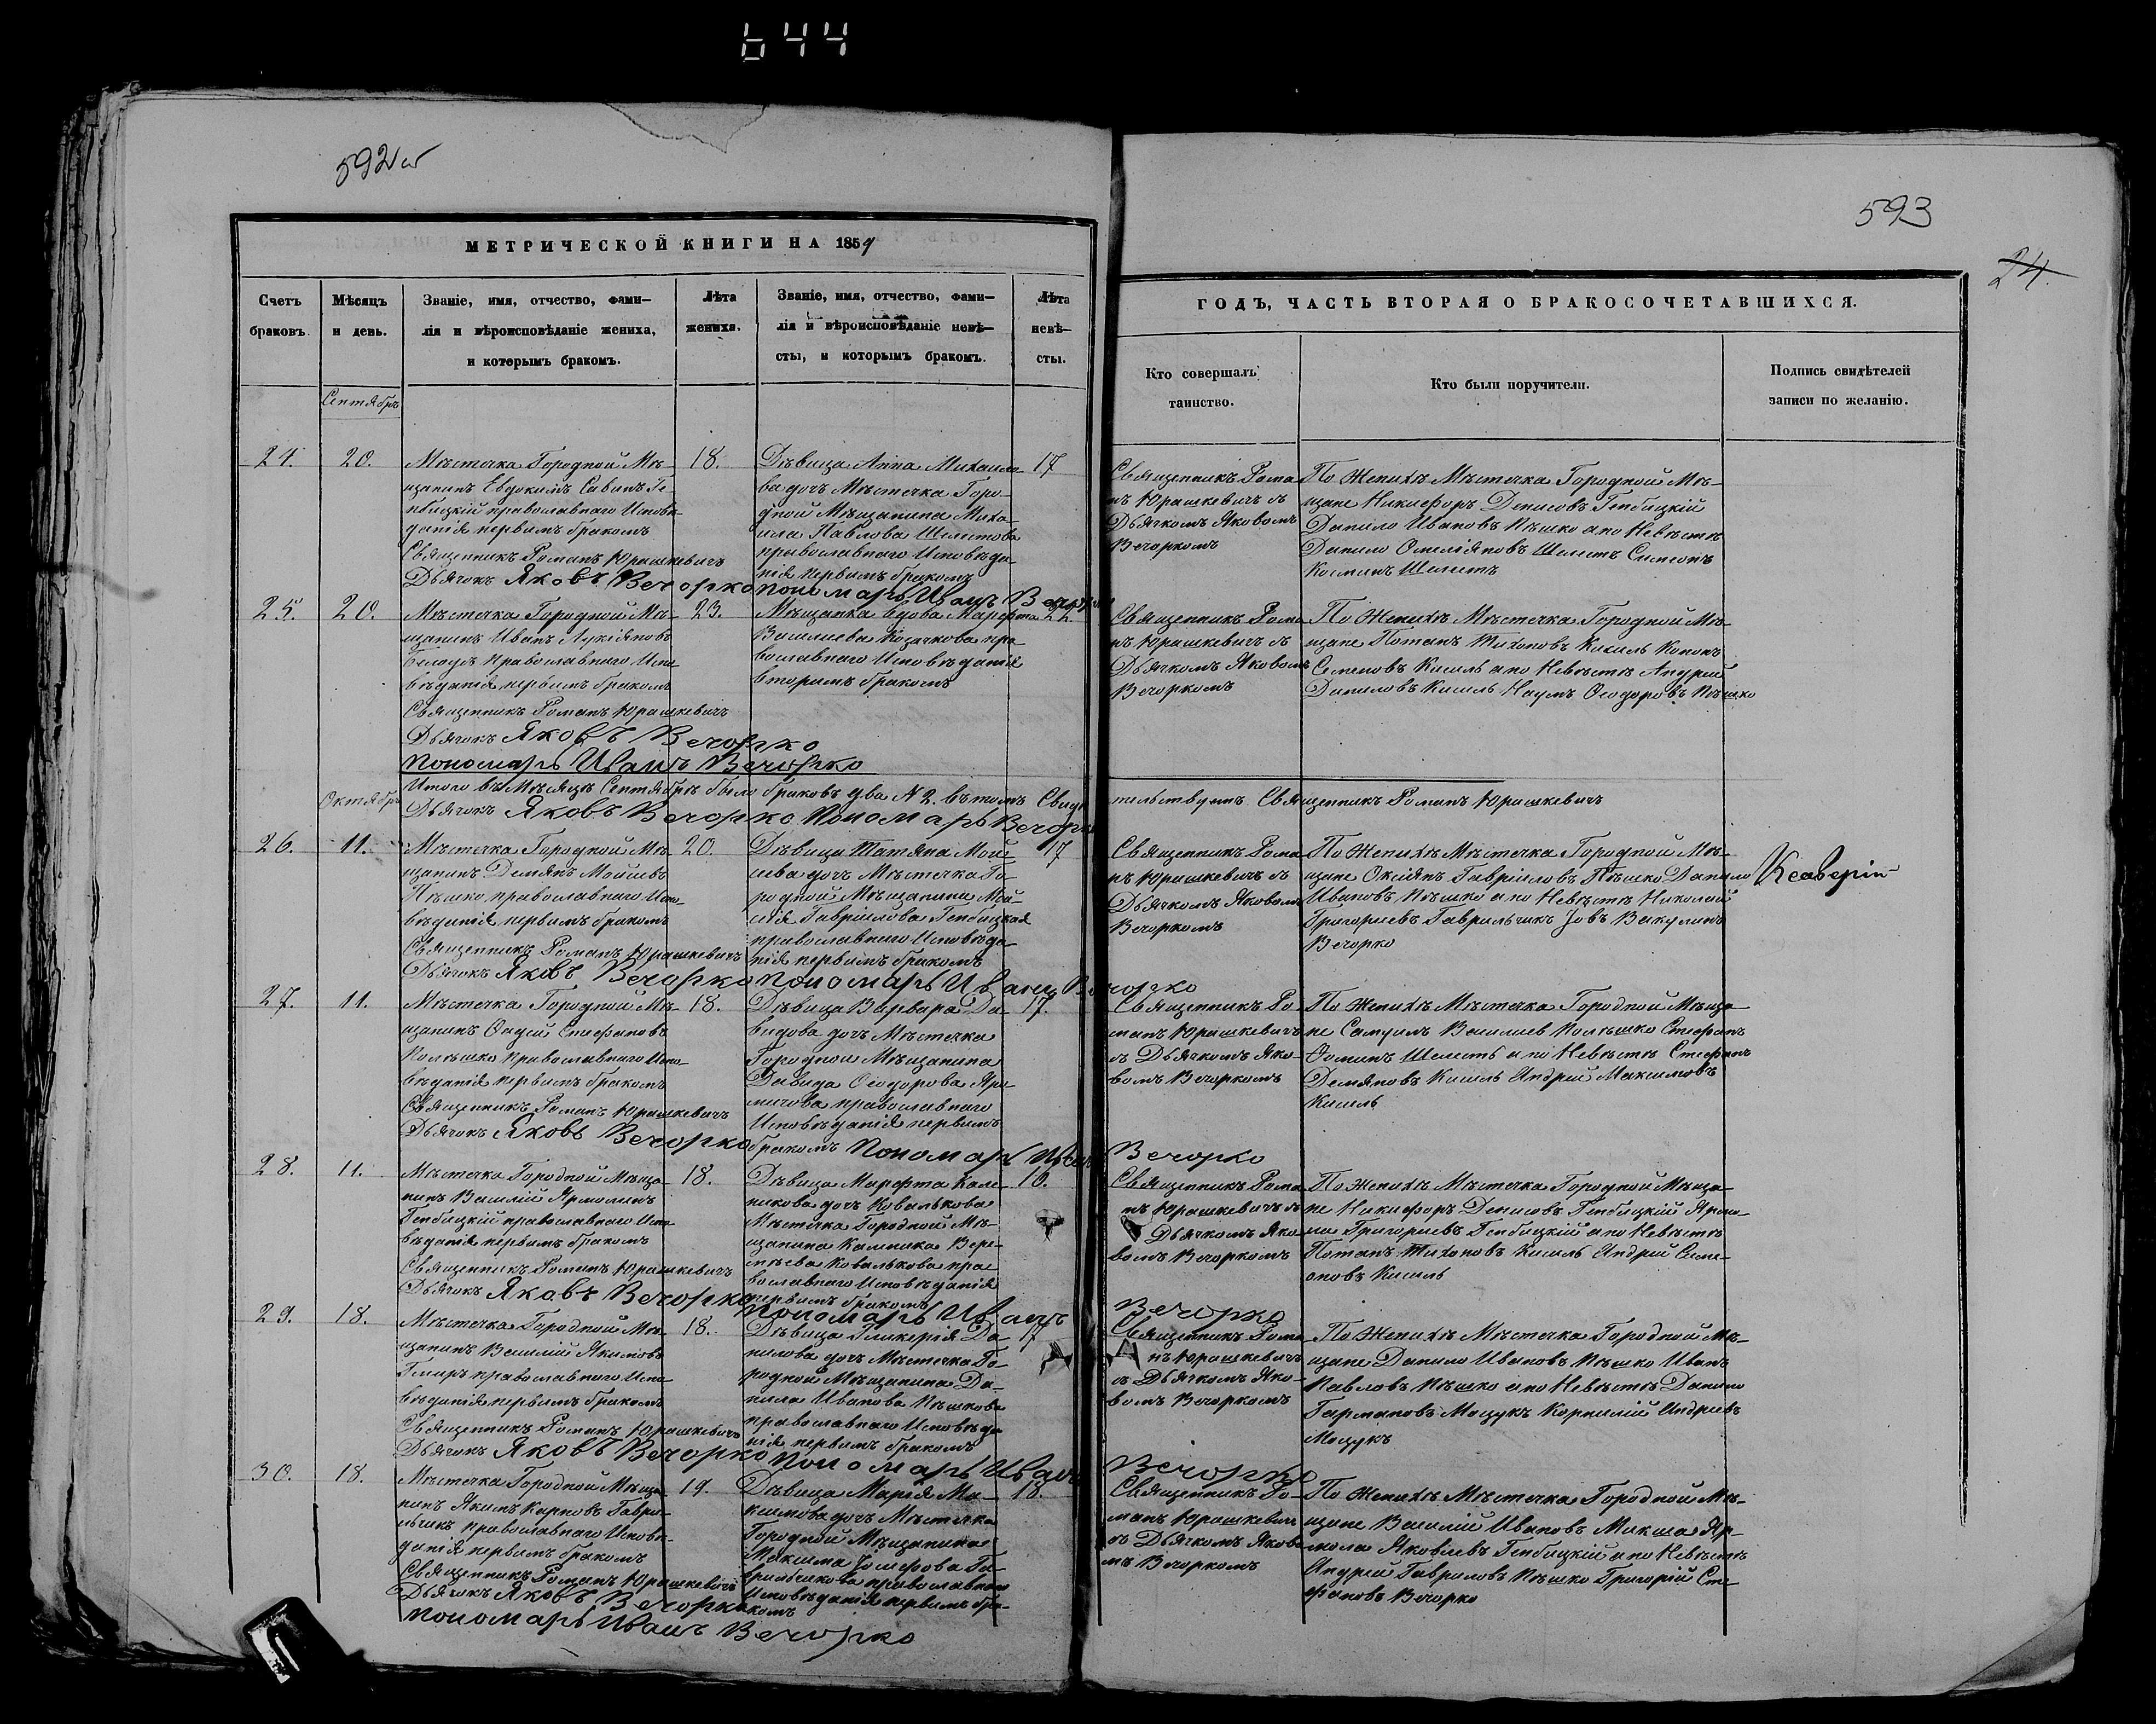 644
592
593
24.
МЕТРИЧЕСКОЙ КНИГИ НА 1859
ГОДЪ, ЧАСТЬ ВТОРАЯ О БРАКОСОЧЕТАВШИХСЯ.
Счетъ браковъ.
Мѣсяцъ и день.
Званіе, имя, отчество, фами-
лія и вѣроисповѣданіе жениха,
и которымъ бракомъ.
Лѣта жениха.
Званіе, имя, отчество, фами-
лія и вѣроисповѣданіе невѣ-
сты, и которымъ бракомъ.
Лѣта невѣ-
сты.
Кто совершалъ
таинство.
Кто были поручители.
Подпись свидѣтелей
записи по желанію.
Сентябрь
24. 20.
Мѣстечка Городной Мѣ-
щанинъ Евдокимъ Савинъ Ге-
нбицкій православнаго Исповѣ-
данія первымъ бракомъ
Священникъ Романъ Юрашкевичъ
Дьячокъ Яковъ Вечорко пономарь Иванъ Вечорко
18.
Дѣвица Анна Михаило-
ва дочь Мѣстечка Горо-
дной Мѣщанина Миха-
ила Павлова Шелестова
православнаго Исповѣда-
нія первымъ бракомъ
17
Священникъ Рома-
нъ Юрашкевичъ съ
Дьячкомъ Яковомъ
Вечоркомъ
По Женихѣ Мѣстечка Городной Мѣ-
щане Никифоръ Денисовъ Генбицкій
Данило Ивановъ Пѣшко а по Невѣстѣ
Данило Омеліяновъ Шелестъ Симеонъ
Косминъ Шелестъ
25. 20.
Мѣстечка Городной Мѣ-
щанинъ Иванъ Лукіяновъ
православнаго Испо-
вѣданія первымъ бракомъ
Священникъ Романъ Юрашкевичъ
Дьячокъ Яковъ Вечорко
пономарь Иванъ Вечорко
23.
Мѣщанка Вдова Марфта
Василиева Козачкова пра-
вославнаго Исповѣданія
вторымъ бракомъ
22.
Священникъ Рома-
нъ Юрашкевичъ съ
Дьячкомъ Яковомъ
Вечоркомъ
По Женихѣ Мѣстечка Городной Мѣ-
щане Потапъ Тихоновъ Кисиль Кононъ
Семеновъ Кисиль а по Невѣстѣ Андрей
Даниловъ Кисиль Наумъ Ѳеодоровъ Пѣшко
Итого въ Мѣсяцѣ Сентябрѣ было браковъ два № 2. вѣтомъ Свидѣтельствуетъ Священникъ Романъ Юрашкевичъ
Октябрь
Дьячокъ Яковъ Вечорко Пономарь Вечорко
26. 11.
Мѣстечка Городной Мѣ-
щанинъ Демянъ Мойсѣевъ
Пѣшко православнаго Испо-
вѣданія первымъ бракомъ
Священникъ Романъ Юрашкевичъ
Дьячокъ Яковъ Вечорко пономарь Иванъ Вечорко
20.
Дѣвица Татяна Мой-
сіева дочь Мѣстечка Го-
родной Мѣщанина Мой-
сія Гавріилова Генбицкая
православнаго Исповѣда-
нія первымъ бракомъ
17
Священникъ Рома-
нъ Юрашкевичъ съ
Дьячкомъ Яковомъ
Вечоркомъ
По Женихѣ Мѣстечка Городной Мѣ-
щане Гавріиловъ Пѣшко Данило
Ивановъ Пѣшко а по Невѣстѣ Николай
Григориевъ Гаврильчикъ Іовъ Вакулинъ
Вечорко
27. 11.
Мѣстечка Городной Мѣ-
щанинъ Стефановъ
Полѣшко Православнаго Испо-
вѣданія первымъ бракомъ
Священникъ Романъ Юрашкевичъ
Дьячокъ Яковъ Вечорко Пономарь Иванъ Вечорко
18.
Дѣвица Варвара Да-
видова дочь Мѣстечка
Городной Мѣщанина
Давида Ѳеодорова Яро-
мичова православнаго
Исповѣданія первымъ
бракомъ
17.
Священникъ Ро-
манъ Юрашкевичъ
съ Дьячкомъ Яко-
вомъ Вечоркомъ
По Женихѣ Мѣстечка Городной Мѣща-
не Самуилъ Василиевъ Полѣшко Стефанъ
Фоминъ Шелестъ а по Невѣстѣ Стефанъ
Демяновъ Кисиль Андрей Максимовъ
Кисиль
28. 11.
Мѣстечка Городной Мѣща-
нинъ Василій Ярмолинъ
Генбицкій православнаго Испо-
вѣданія первымъ бракомъ
Священникъ Романъ Юрашкевичъ
Дьячокъ Яковъ Вечорко пономарь Иванъ Вечорко
18.
Дѣвица Марфта Кале-
никова дочь Ковалькова
Мѣстечка Городной Мѣ-
щанина Калиника
Ковалькова пра-
вославнаго Исповѣданія
первымъ бракомъ
Священникъ Рома-
нъ Юрашкевичъ съ
Дьячкомъ Яко-
вомъ Вечоркомъ
По Женихѣ Мѣстечка Городной Мѣща-
не Никифоръ Денисовъ Генбицкій Ярмо-
ла Григориевъ Генбицкій а по Невѣстѣ
Потапъ Тихоновъ Кисиль Андрей Семе-
оновъ Кисиль
29. 18.
Мѣстечка Городной Мѣ-
щанинъ Василій Якимовъ
православнаго Испо-
вѣданія первымъ бракомъ
Священникъ Романъ Юрашкевичъ
Дьячокъ Яковъ Вечорко пономарь Иванъ Вечорко
18.
Дѣвица Гликерія Да-
нилова дочь Мѣстечка Го-
родной Мѣщанина Да-
нила Иванова Пѣшкова
православнаго Исповѣда-
нія первымъ бракомъ
17
Священникъ Рома-
нъ Юрашкевичъ
съ Дьячкомъ Яко-
вомъ Вечоркомъ
По Женихѣ Мѣстечка Городной Мѣ-
щане Данило Ивановъ Пѣшко Иванъ
Павловъ Пѣшко а по Невѣстѣ Данило
Гармановъ Моцукъ Корнилій Андреевъ
Моцукъ
30. 18.
Мѣстечка Городной Мѣща-
нинъ Якимъ Карповъ Гаври-
льчикъ православнаго Исповѣ-
данія первымъ бракомъ
Священникъ Романъ Юрашкевичъ
Дьячокъ Яковъ Вечорко
пономарь Иванъ Вечорко
19.
Дѣвица Марія Ма-
ксимова дочь Мѣстечка
Городной Мѣщанина
Максима Іосифова Га-
врильчикова православнаго
Исповѣданія первымъ бра-
комъ
18.
Священникъ Ро-
манъ Юрашкевичъ
съ Дьячкомъ Яково-
мъ Вечоркомъ
По Женихѣ Мѣстечка Городной Мѣ-
щане Василій Ивановъ Микша Яр-
мола Яковлевъ Генбицкій а по Невѣстѣ
Андрей Гавриловъ Пѣшко Григорій Сте-
фановъ Вечорко